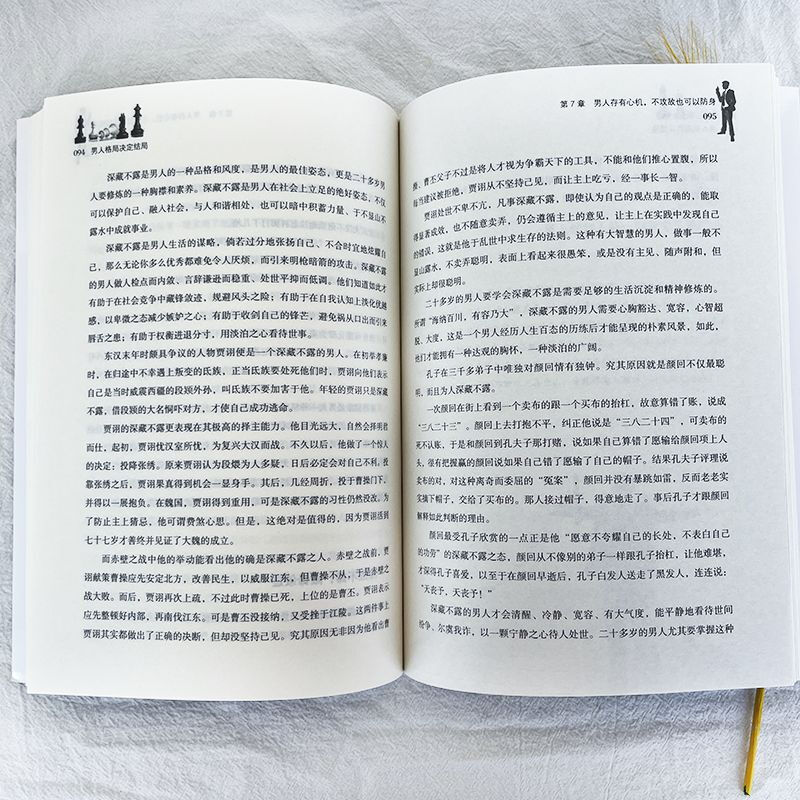 094 男人格局决定结局
深藏不露是男人的一种品格和风度，是男人的最佳姿态，更是二十多岁男
人要修炼的一种胸襟和素养。深藏不露是男人在社会上立足的绝好姿态，不仅
可以保护自己、融入社会，与人和谐相处，也可以暗中积蓄力量、于不显山不
露水中成就事业。
深藏不露是男人生活的谋略，倘若过分地张扬自己、不合时宜地炫耀自
己，那么无论你多么优秀都难免令人厌烦，而引来明枪暗箭的攻击。深藏不露
的男人做人检点而内敛、言辞谦逊而稳重、处世平抑而低调。他们知道如此才
有助于在社会竞争中藏锋敛迹，规避风头之险；有助于在自我认知上淡化优越
感、以卑微之态减少嫉妒之心；有助于收剑自己的锋芒，避免祸从口出而引来
唇舌之患；有助于权衡进退分寸，用淡泊之心看待世事。
东汉末年时颇具争议的人物贾诩便是一个深藏不露的男人。在初举孝廉
时，在归途中不幸遇上叛变的氐族，正当氐族要处死他们时，贾诩向他们表示
自己是当时威震西疆的段颎外孙，叫氐族不要加害于他。年轻的贾诩只是深藏
不露，借段颎的大名恫吓对方，才使自己成功逃命。
贾诩的深藏不露更表现在其极高的择主能力。他目光远大，自然会择明君
而仕，起初，贾诩忧汉室所忧，为复兴大汉而战。不久以后，他做了一个惊人
的决定：投降张绣。原来贾诩认为段煨为人多疑，日后必定会对自己不利，投
靠张绣之后，贾诩果真得到机会一显身手。其后，几经周折，投于曹操门下，
并得以一展抱负。在魏国，贾诩得到重用，可是深藏不露的习性仍然没改。为
了防止主上猜忌，他可谓费煞心思。但是，这绝对是值得的，因为贾诩活到
七十七岁才善终并见证了大魏的成立。
而赤壁之战中他的举动能看出他的确是深藏不露之人。赤壁之战前，贾
诩献策曹操应先安定北方，改善民生，以威服江东，但曹操不从，于是赤壁之
战大败。而后，贾诩再次上疏，不过此时曹操已死，上位的是曹丕。贾诩表示
应先整顿好内部，再南伐江东。可是曹丕没接纳，又受挫于江陵。这两件事上
贾诩其实都做出了正确的决断，但却没坚持己见。究其原因无非因为他看出曹
第7章 男人存有心机，不攻敌也可以防身
095
操、曹丕父子不过是将人才视为争霸天下的工具，不能和他们推心置腹，所以
每当建议被拒绝，贾诩从不坚持己见，而让主上吃亏，经一事长一智。
贾诩处世不卑不亢，凡事深藏不露，即使认为自己的观点是正确的，能取
得显著成效，也不随意卖弄，仍会遵循主上的意见，让主上在实践中发现自己
的错误，这就是他于乱世中求生存的法则。这种有大智慧的男人，做事一般不
显山露水，不卖弄聪明，表面上看起来很愚笨，或是没有主见、随声附和，但
实际上却很聪明。
二十多岁的男人要学会深藏不露是需要足够的生活沉淀和精神修炼的。
所谓“海纳百川，有容乃大”，深藏不露的男人需要心胸豁达、宽容，心智超
脱、大度，这是一个男人经历人生百态的历练后才能呈现的朴素风景，如此，
他们才能拥有一种达观的胸怀，一种淡泊的广阔。
孔子在三千多弟子中唯独对颜回情有独钟。究其原因就是颜回不仅最聪
明，而且为人深藏不露。
一次颜回在街上看到一个卖布的跟一个买布的抬杠，故意算错了账，说成
“三八二十三”。颜回上去打抱不平，纠正他说是“三八二十四”，可卖布的
死不认账，于是和颜回到孔夫子那打赌，说如果自己算错了愿输给颜回项上人
头，很有把握赢的颜回说如果自己错了愿输了自己的帽子。结果孔夫子评理说
卖布的对，对这种离奇而委屈的“冤案”，颜回并没有暴跳如雷，反而老老实
实摘下帽子，交给了买布的。那人接过帽子，得意地走了。事后孔子才跟颜回
解释如此判断的理由。
颜回最受孔子欣赏的一点正是他“愿意不夸耀自己的长处，不表白自己
的功劳”的深藏不露之态，颜回从不像别的弟子一样跟孔子抬杠，让他难堪，
才深得孔子喜爱，以至于在颜回早逝后，孔子白发人送走了黑发人，连连说：
“天丧予，天丧予！”
深藏不露的男人才会清醒、冷静、宽容、有大气度，能平静地看待世间
纷争、尔虞我诈，以一颗宁静之心待人处世。二十多岁的男人尤其要掌握这种